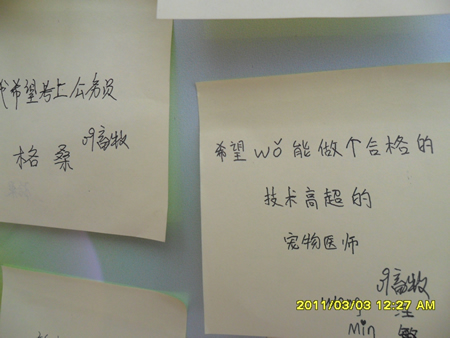 我希望考上公务员
格桑 09畜牧
希望wǒ能做个合格的
技术高超的
宠物医师
09畜牧
Wang 汪
Min 敏
2011/03/03 12:27 AM